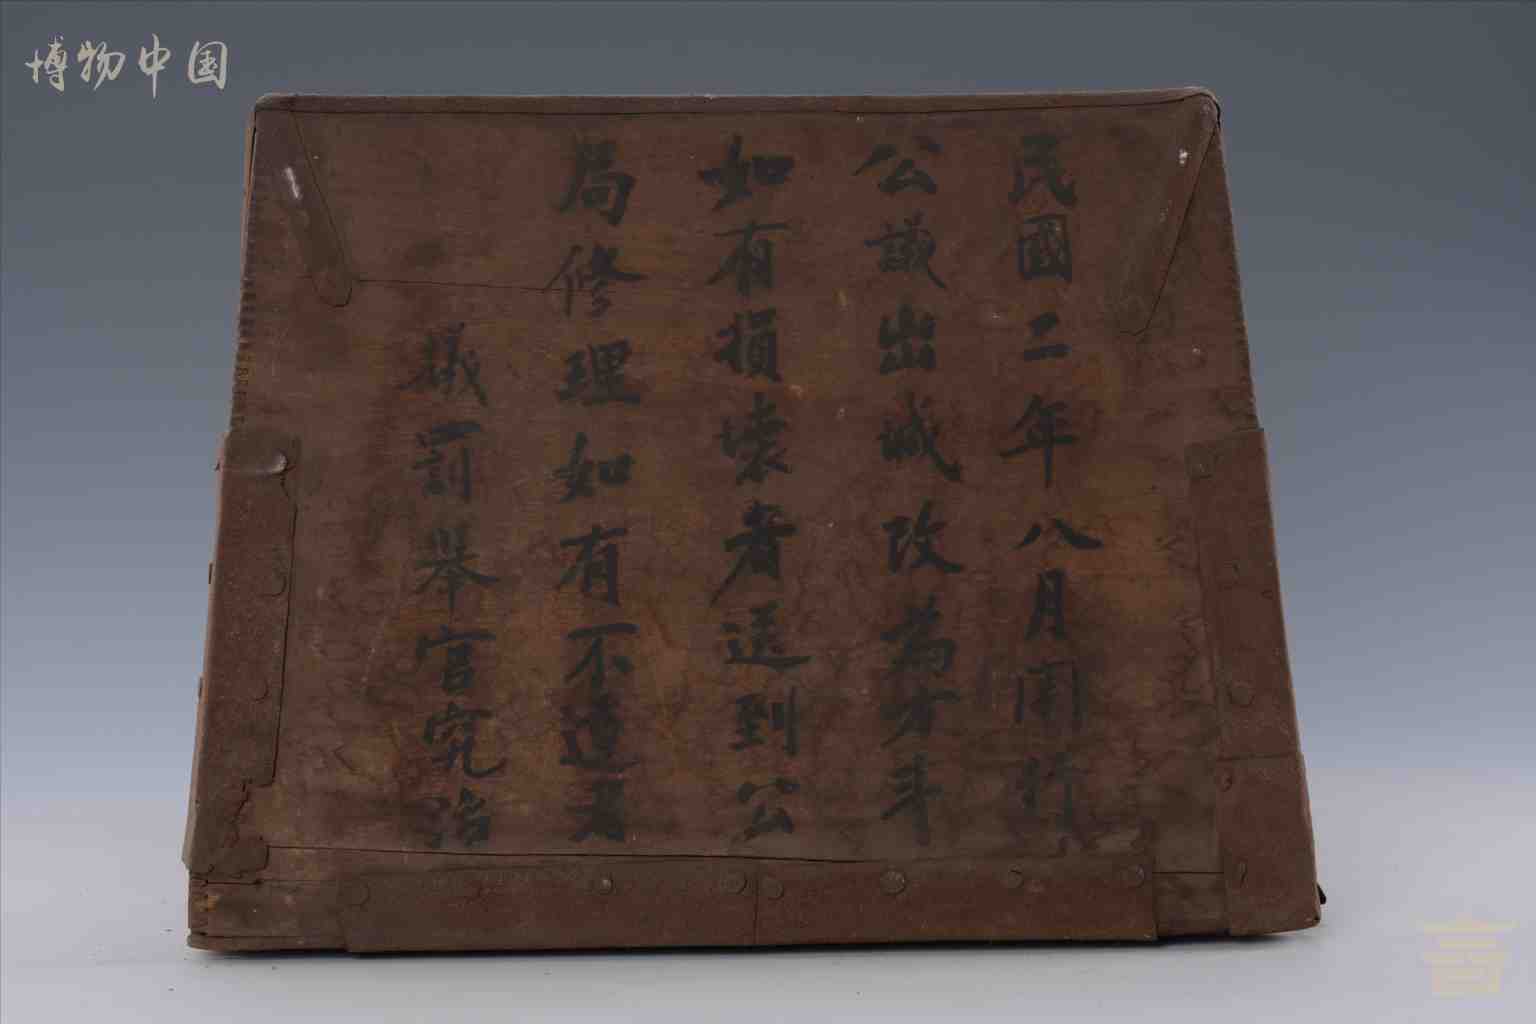 博物中国
民國二年八月開行
公議出城改為方斗
如有損壞者送到公
局修理如有不遵又
議罰舉官究治